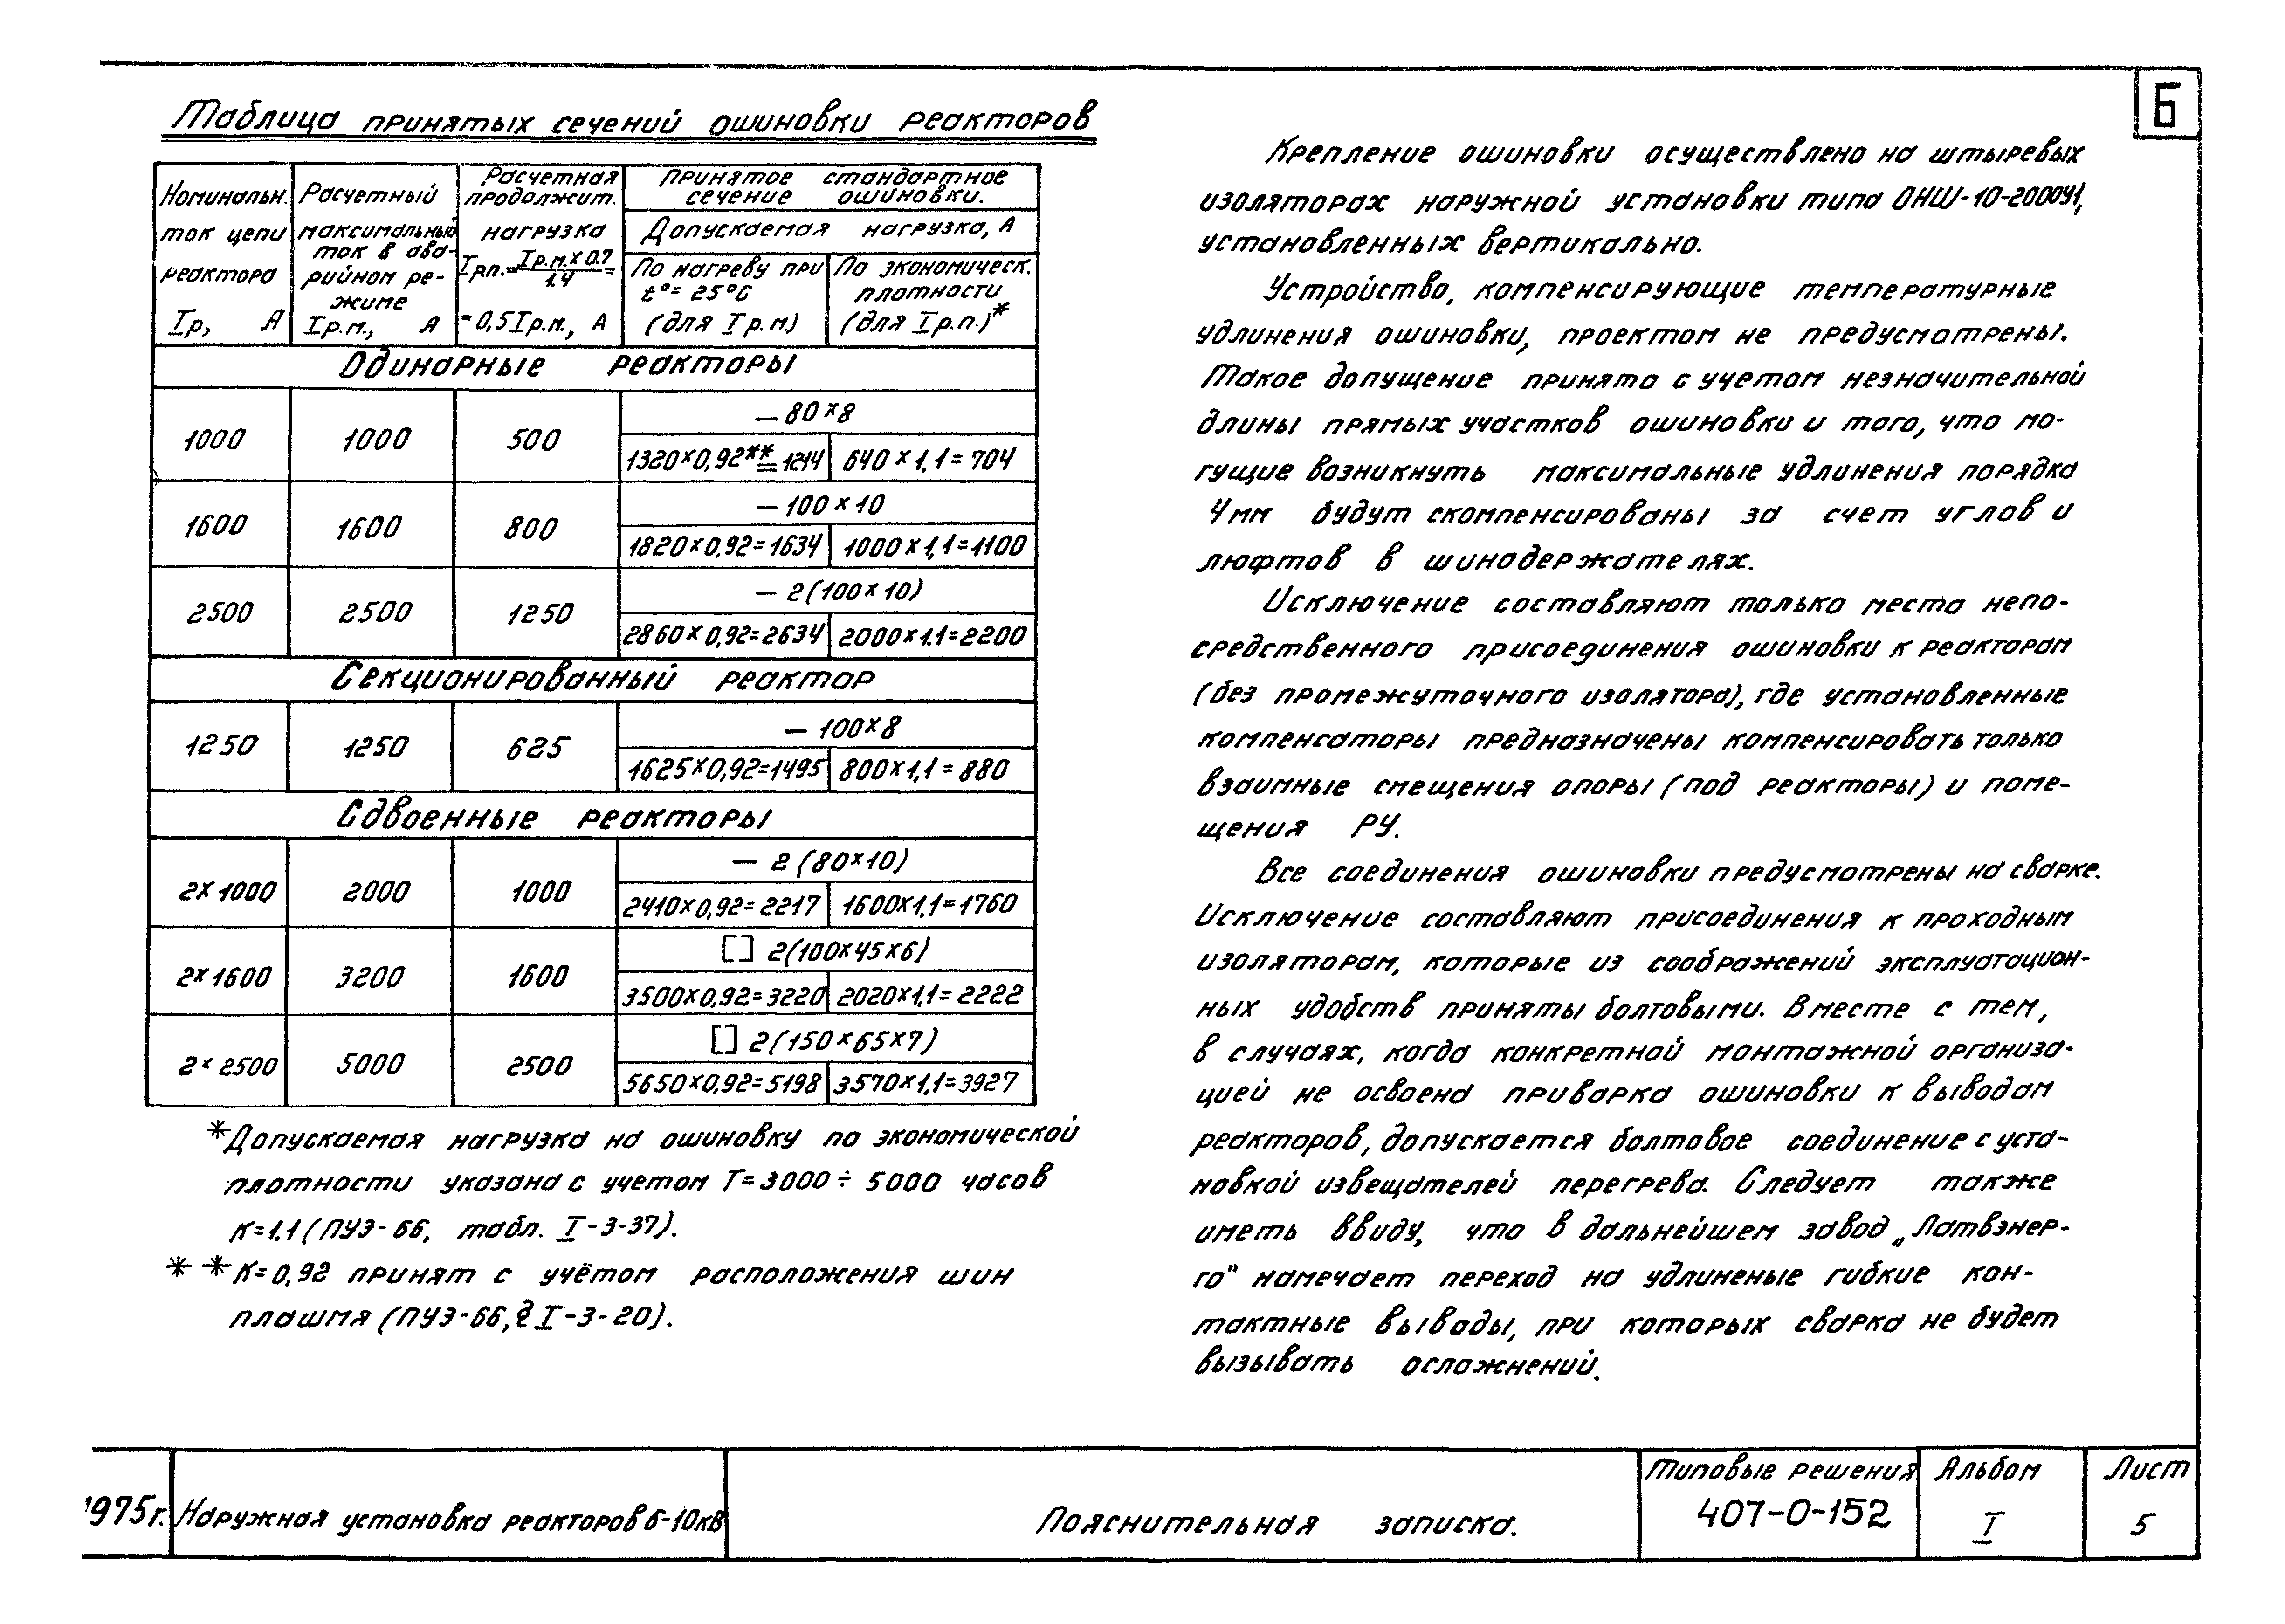 6
Таблица принятых сечений ошиновки реакторов
Номинальн. ток цепи реактора Iр, А
Расчетный максимальный ток в ава-рийном ре-жиме Iр.м., А
Расчетная продолжит. нагрузка Iрп.=Iр.м.×0.7/1.4= =0,5Iр.м., А
Принятое стандартное сечение ошиновки.
Допускаемая нагрузка, А
По нагреву при t°=25°С (для Iр.м)
По экономическ. плотности (для Iр.п.)*
Одинарные реакторы
1000 1000 500 — 80×8
1320×0,92**=1214 640×1,1=704
1600 1600 800 — 100×10
1820×0,92=1634 1000×1,1=1100
2500 2500 1250 — 2(100×10)
2860×0,92=2634 2000×1.1=2200
Секционированный реактор
1250 1250 625 — 100×8
1625×0,92=1495 800×1,1=880
Сдвоенные реакторы
2×1000 2000 1000 — 2(80×10)
2410×0,92=2217 1600×1,1=1760
2×1600 3200 1600 [] 2(100×45×6)
3500×0,92=3220 2020×1,1=2222
2×2500 5000 2500 [] 2(150×65×7)
5650×0,92=5198 3570×1,1=3927
*Допускаемая нагрузка на ошиновку по экономической
плотности указана с учетом Т=3000÷5000 часов
К=1.1 (ПУЭ-66, табл. I-3-37).
**К=0,92 принят с учётом расположения шин
плашмя (ПУЭ-66,§ I-3-20).
Крепление ошиновки осуществлено на штыревых
изоляторах наружной установки типа ОНШ-10-2000У1,
установленных вертикально.
Устройство, компенсирующие температурные
удлинения ошиновки, проектом не предусмотрены.
Такое допущение принято с учетом незначительной
длины прямых участков ошиновки и того, что мо-
гущие возникнуть максимальные удлинения порядка
4мм будут скомпенсированы за счет углов и
люфтов в шинодержателях.
Исключение составляют только места непо-
средственного присоединения ошиновки к реакторам
(без промежуточного изолятора), где установленные
компенсаторы предназначены компенсировать только
взаимные смещения опоры (под реакторы) и поме-
щения РУ.
Все соединения ошиновки предусмотрены на сварке.
Исключение составляют присоединения к проходным
изоляторам, которые из соображений эксплуатацион-
ных удобств приняты болтовыми. Вместе с тем,
в случаях, когда конкретной монтажной организа-
цией не освоена приварка ошиновки к выводам
реакторов, допускается болтовое соединение с уста-
новкой извещателей перегрева. Следует также
иметь ввиду, что в дальнейшем завод „Латвэнер-
го" намечает переход на удлиненые гибкие кон-
тактные выводы, при которых сварка не будет
вызывать осложнений.
1975г.
Наружная установка реакторов 6-10кВ
Пояснительная записка.
Типовые решения
407-0-152
Альбом
I
Лист
5